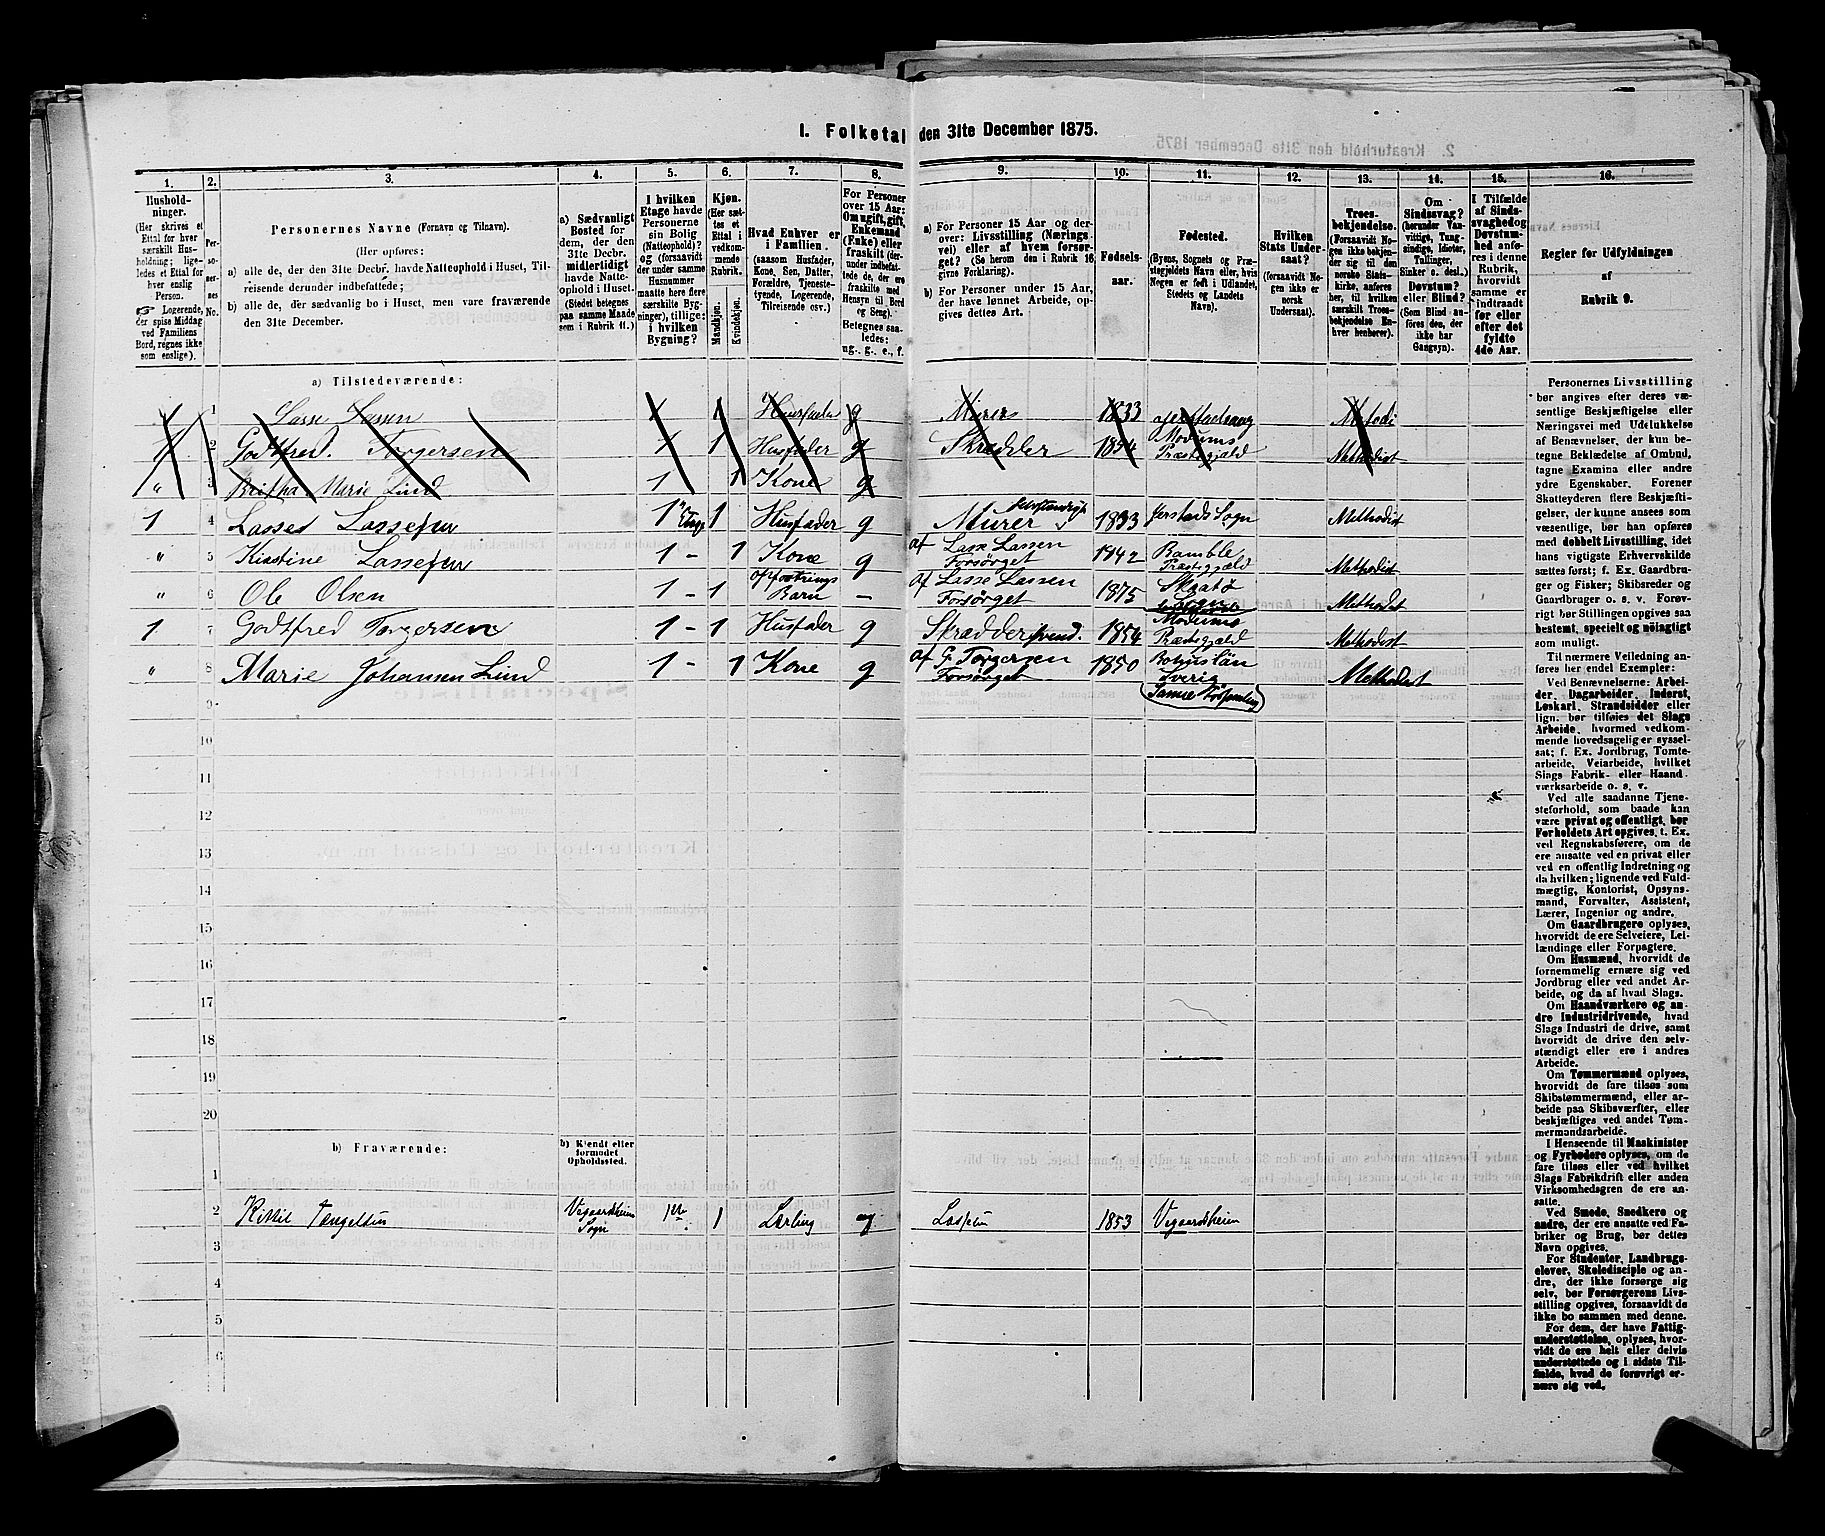 1. Folketal den 31te December 1875.
1.
Hushold-
ninger.
(Her skrives et
Ettal for hver
særskilt Hus-
holdning; lige-
ledes et Ettal for
hver enslig
Person.
Logerende,
der spise Middag
ved Familiens
Bord, regnes ikke
som enslige).
2.
Per-
so-
ner-
nes
No.
3.
Personernes Navne (Fornavn og Tilnavn).
(Her opføres:
a) alle de, der den 31te Decbr. havde Natteophold i Huset, Til-
reisende derunder indbefattede;
b) alle de, der sædvanlig bo i Huset, men vare fraværende
den 31te December.
4.
a) Sædvanligt
Bosted for
dem, der den
31te Decbr.
midlertidigt
havde Natte-
ophold i Huset.
(Stedet betegnes
paa samme Maade
som i Rubrik 11.)
5.
I hvilken
Etage havde
Personerne
sin Bolig
(Natteophold)?
og (forsaavidt
der under samme
Husnummer
maatte høre flere
særskilte Byg-
ninger), tillige:
i hvilken
Bygning?
6.
Kjøn.
(Her sæt-
tes et
Ettal i
vedkom-
mende
Rubrik.)
Mandkjøn.
Kvindekjøn.
7.
Hvad Enhver er
i Familien.
(saasom Husfader,
Kone, Søn, Datter,
Forældre, Tjeneste-
tyende, Logerende,
Tilreisende osv.)
8.
For Personer
over 15 Aar:
Om ugift, gift,
Enkemand
(Enke) eller
fraskilt (der-
under indbefat-
tede de, der ere
fraskilte med
Hensyn til Bord
og Seng).
Betegnes saa-
ledes:
ug., g., e., f.
9.
a) For Personer 15 Aar og der-
over: Livsstilling (Nærings-
vei) eller af hvem forsør-
get? (Se herom den i Rubrik 16
givne Forklaring).
b) For Personer under 15 Aar,
der have lønnet Arbeide, op-
gives dettes Art.
10.
Fødsels-
aar.
11.
Fødested.
(Byens, Sognets og Præ-
stegjeldets Navn eller, hvis
Nogen er født i Udlandet,
Stedets og Landets
Navn).
12.
Hvilken
Stats Under-
saat?
(forsaavidt No-
gen ikke er
norsk
Undersaat).
13.
Troes-
bekjendelse.
(Forsaavidt No-
gen ikke bekjen-
der sig til den
norske Stats-
kirke, anføres
her, til hvilken
særskilt Troes-
bekjendelse En-
hver henhører).
14.
Om
Sindssvag?
(herunder Van-
vittige, Tung-
sindige, Idioter,
Tullinger,
Sinker o. desl.)
Døvstum?
eller Blind?
(Som Blind an-
føres den, der
ikke har
Gangsyn).
15.
I Tilfælde
af Sinds-
svaghed og
Døvstum-
hed anfø-
res i denne
Rubrik,
hvorvidt
samme er
indtraadt
før eller
efter det
fyldte
4de Aar.
16.
Regler for Udfyldningen
af
Rubrik 9.
a) Tilstedeværende:
1 1 Lasse Lasen 1 1 Huusfader g Murer 1833 Metodi
1 2 Godtfred. Torgersen 1 1 Husfader g Skrædder 1854 Modums Præstegjæld Methodist
" 3 Britha Marie Lind 1 1 Kone g
1 4 Lasses Lassesen 1" Etage 1 Husfader g Murer 1833 Jerstads Sogn Methodist
" 5 Kirstine Lassesen 1 - 1 Kone g af Lasse Lassen Forsørget 1842 Bamble Præstegjæld Methodist
" 6 Ole Olsen 1 - 1 opfostrings Barn - af Lasse Lassen Forsørget 1875 Skaatø Sogn Methodist
1 7 Godtfred Torgersen 1 - 1 Husfader g Skrædder svend. 1854 Modums Præstegjæld Methodist
" 8 Marie Johansen Lind 1 - 1 Kone g af G Torgersen Forsørget 1850 Bohuslän Sverig Methodist
9
10
11
12
13
14
15
16
17
18
19
20
b) Fraværende:
b) Kjendt eller
formodet
Opholdssted.
1
2 Kittil Tengelsen Vegaardsheim Sogn 1ste 1 Lærling 1853 Vegaardsheim
3
4
5
6
Personernes Livsstilling
bør angives efter deres væ-
sentlige Beskjæftigelse eller
Næringsvei med Udelukkelse
af Benævnelser, der kun be-
tegne Beklædelse af Ombud,
tagne Examina eller andre
ydre Egenskaber. Forener
Skatteyderen flere Beskjæfti-
gelser, der kunne ansees som
væsentlige, bør han opføres
med dobbelt Livsstilling, idet
hans vigtigste Erhvervskilde
sættes først; f. Ex. Gaardbru-
ger og Fisker; Skibsreder og
Gaardbruger o. s. v. Forøv-
rigt bør Stillingen opgives saa
bestemt, specielt og nøiagtigt
som muligt.
Til nærmere Veiledning an-
føres her endel Exempler:
Ved Benævnelserne: Arbei-
der, Dagarbeider, Inderst,
Løskarl, Strandsidder eller
lign. bør tilføies det Slags
Arbeide, hvormed vedkom-
mende hovedsagelig er syssel-
sat; f. Ex. Jordbrug, Tomte-
arbeide, Veiarbeide, hvilket
Slags Fabrik- eller Haand-
værksarbeide o. s. v.
Ved alle saadanne Tjene-
steforhold, som baade kan
være privat og offentligt, bør
Forholdets Art opgives, t. Ex.
ved Regnskabsførere, om de
ere ansatte ved en privat eller
ved en offentlig Indretning og
da hvilken; lignende ved Fuld-
mægtig, Kontorist, Opsyns-
mand, Forvalter, Assistent,
Lærer, Ingeniør og andre.
Om Gaardbrugere oplyses,
hvorvidt de ere Selveiere, Lei-
lændinge eller Forpagtere.
Om Husmænd, hvorvidt de
fornemmelig ernære sig ved
Jordbrug eller ved andet Ar-
beide, og da af hvad Slags.
Om Haandværkere og an-
dre Industridrivende, hvad
Slags Industri de drive, samt
hvorvidt de drive den selv-
stændigt eller ere i andres
Arbeide.
Om Tømmermænd oplyses,
hvorvidt de fare tilsøs som
Skibstømmermænd, eller ar-
beide paa Skibsværfter, eller
beskjæftiges ved andet Tøm-
mermandsarbeide.
I Henseende til Maskinister
og Fyrbødere oplyses, om de
fare tilsøs eller ved hvilket
Slags Fabrikdrift eller anden
Virksomhedsgren de ere an-
satte.
Ved Smede, Snedkere og
andre, der ere ansatte ved Fa-
briker og Brug, bør dettes
Navn opgives.
For Studenter, Landbrugs-
elever, Skoledisciple og an-
dre, der ikke forsørge sig
selv, bør Forsørgerens Livs-
stilling opgives, forsaavidt de
ikke bo sammen med denne.
For dem, der have Fattig-
understøttelse, oplyses, hvor-
vidt de ere helt eller delvis
understøttede og i sidste Til-
fælde, hvad de forøvrigt er-
nære sig ved.